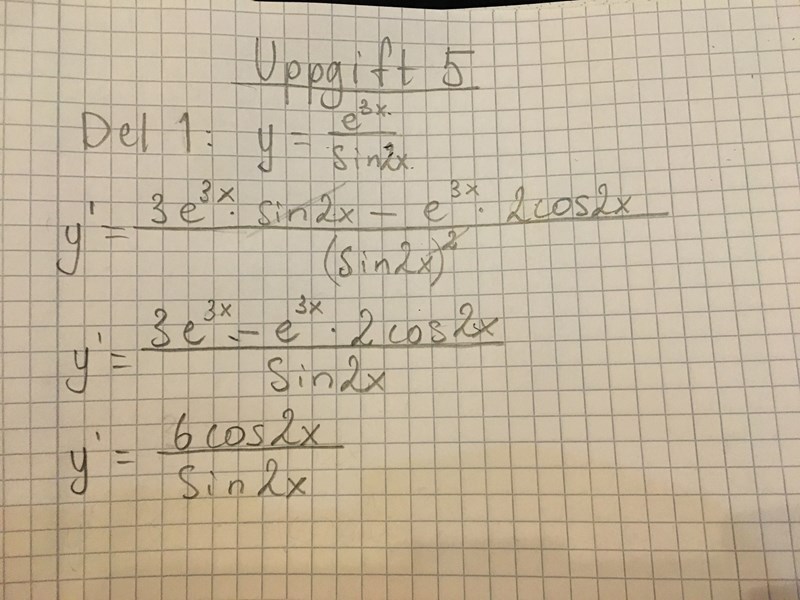 Uppgift 5
Del 1: y = e^3x / sin2x
y' = 3e^3x · sin2x - e^3x · 2cos2x / (sin2x)^2
y' = 3e^3x - e^3x · 2cos2x / sin2x
y' = 6cos2x / sin2x